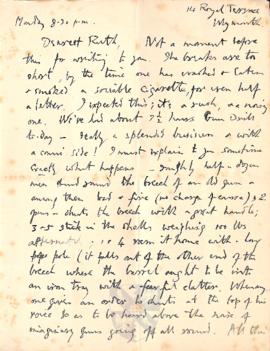 14 Royal Terrace
Weymouth
Monday 8-30 p.m.
Dearest Ruth, Not a moment before
this for writing to you. The breaks are too
short, by the time one has crashed & eaten
& smoked a sociable cigarette, for even half
a letter. I expected this; it's a rush, as
one. We've had about 7½ hours Gun Drill
to-day – really a splendid business with
a comic side! I must explain to you sometime
exactly what happens – roughly half-a-dozen
men stand round the breech of an old gun –
among them load & fire (no charge of course) 
guns – shuts the breech with a great handle;
3-5 stick in the shells weighing 100 lbs
10 4 ram it home with a long
pole (it falls out of the other end of the
breech where the barrel ought to be into
an iron tray with a fearful clatter. Whenever
one gives an order he shouts at the top of his
voice so as to be heard above the noise of
imaginary guns going off all round. All this